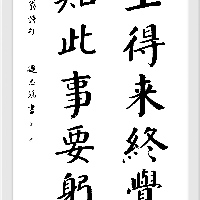 上得来終覺
知此事要躬
翁詩句